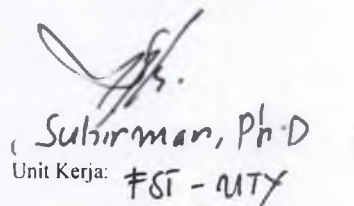 ( Suhirman, Ph.D
Unit Kerja: FST - UTY